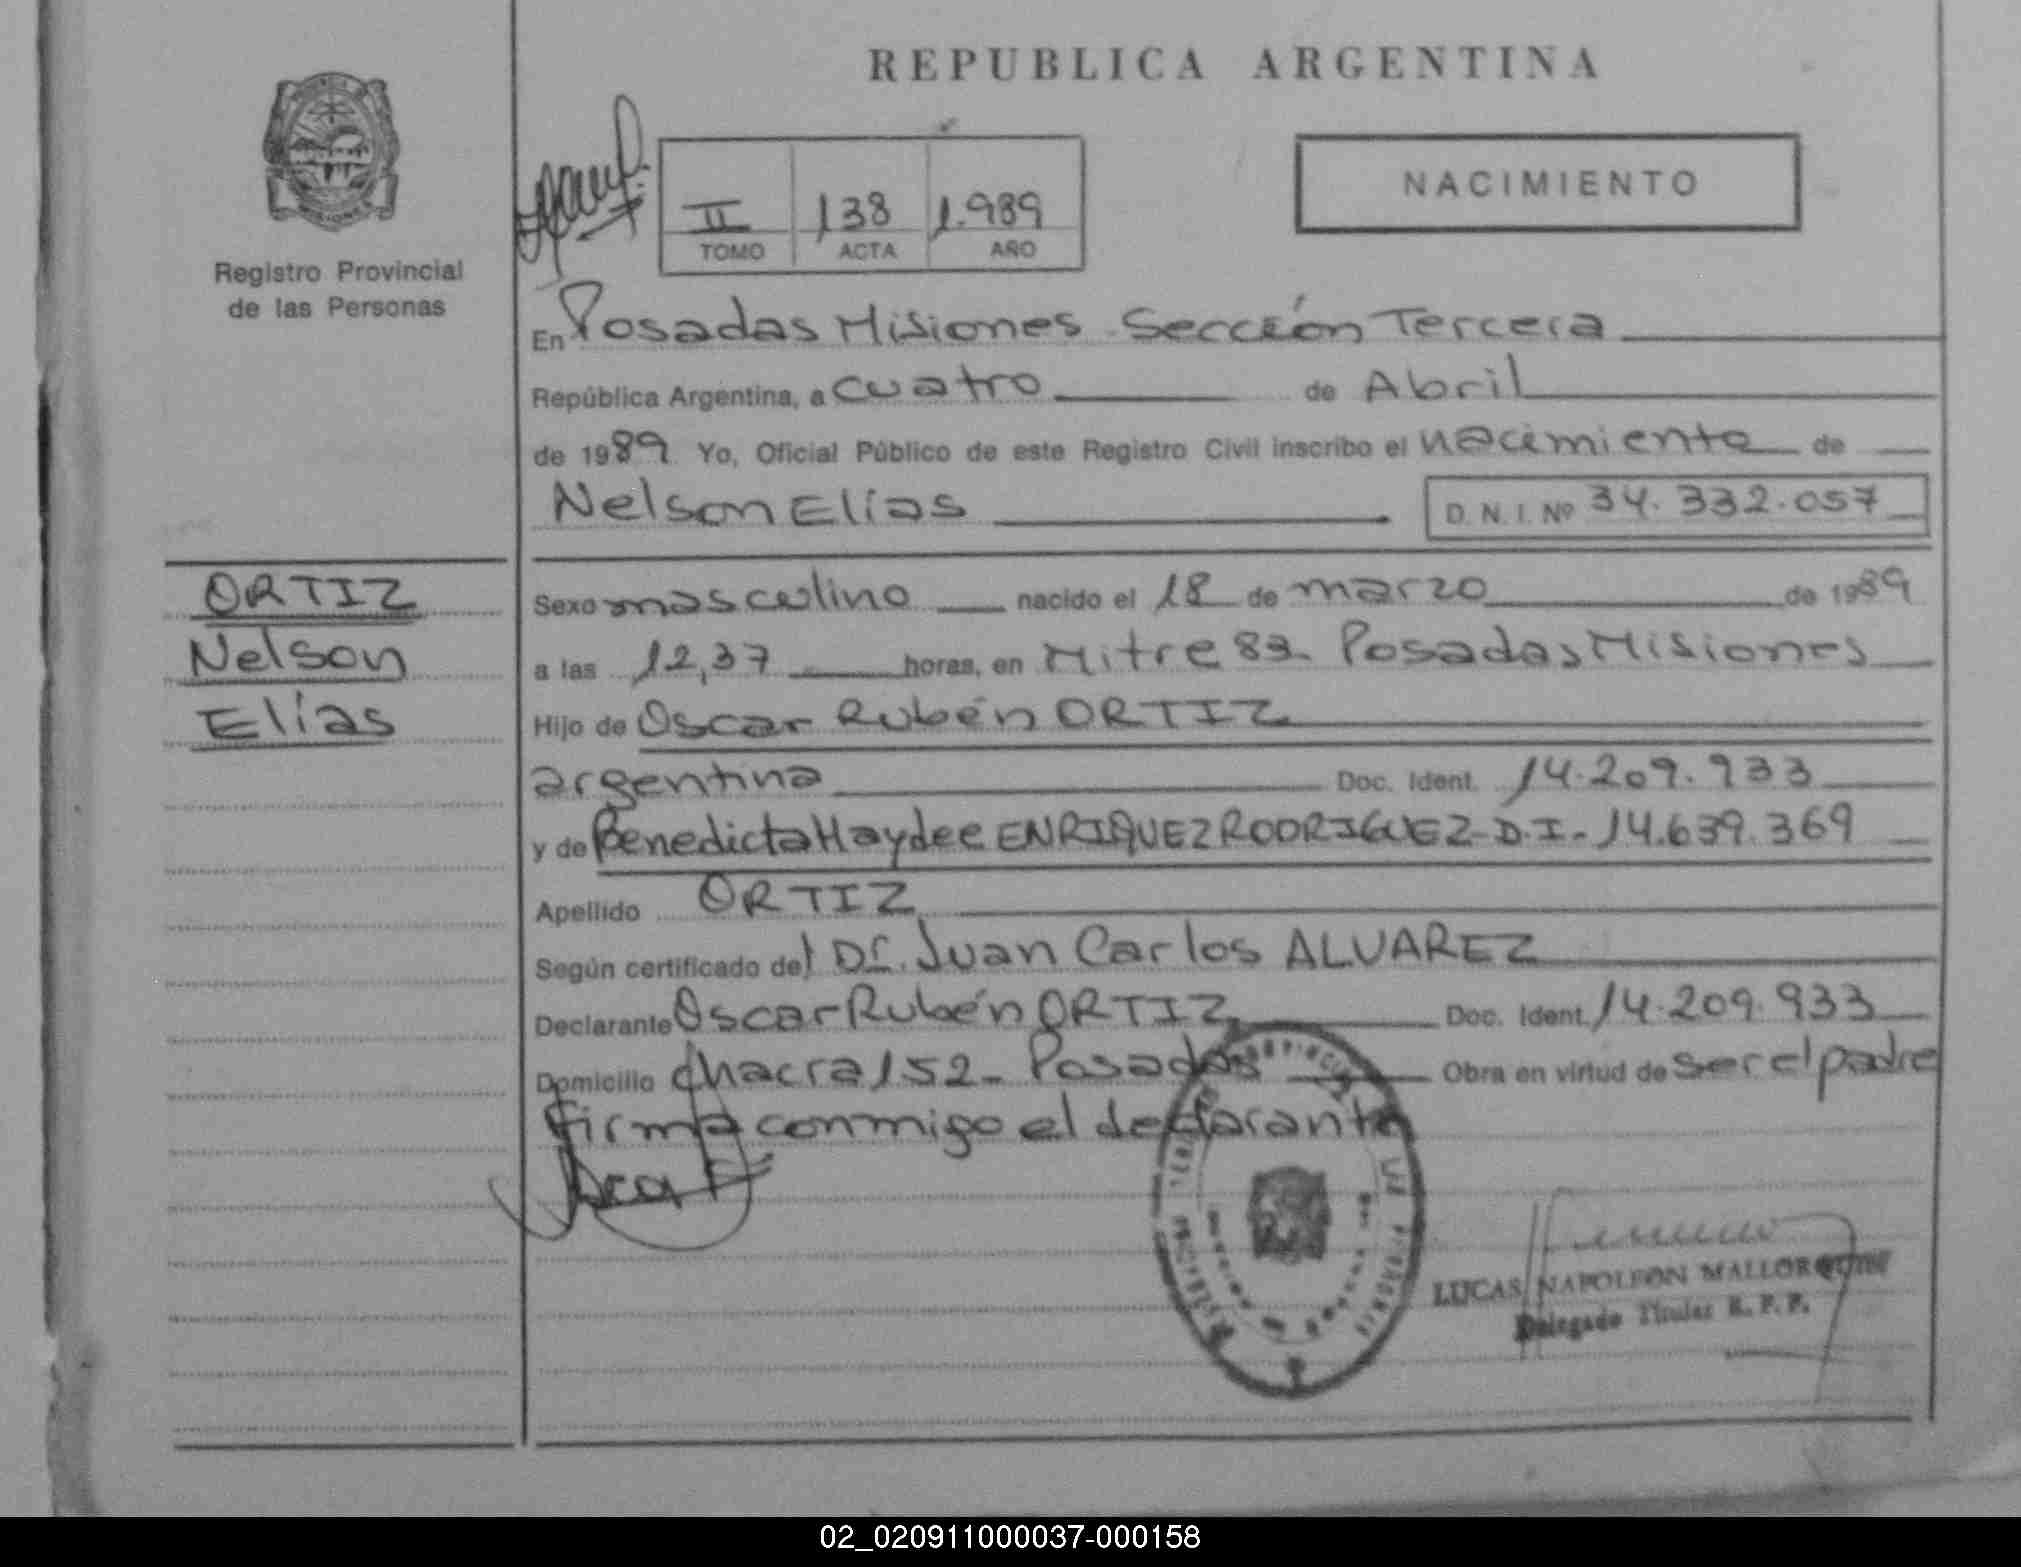 REPUBLICA ARGENTINA
Registro Provincial
de las Personas
II 138 1.989
TOMO ACTA AÑO
NACIMIENTO
En Posadas Misiones Sección Tercera
República Argentina, a cuatro de Abril
de 1989 Yo, Oficial Público de este Registro Civil inscribo el nacimiento de
Nelson Elías D. N. I. Nº 34.332.057
ORTIZ
Nelson
Elías
Sexo masculino nacido el 18 de marzo de 1989
a las 12,37 horas, en Mitre 83 Posadas Misiones
Hijo de Oscar Rubén ORTIZ
argentina Doc. Ident. 14.209.933
y de Benedicta Haydee ENRIQUEZ RODRIGUEZ-D.I.- 14.639.369
Apellido ORTIZ
Según certificado del Dr. Juan Carlos ALVAREZ
Declarante Oscar Rubén ORTIZ Doc. Ident. 14.209.933
Domicilio chacra 152- Posadas Obra en virtud de ser el padre
firma conmigo el declarante
LUCAS NAPOLEON MALLORQUIN
Delegado Titular R. P. P.
02_020911000037-000158